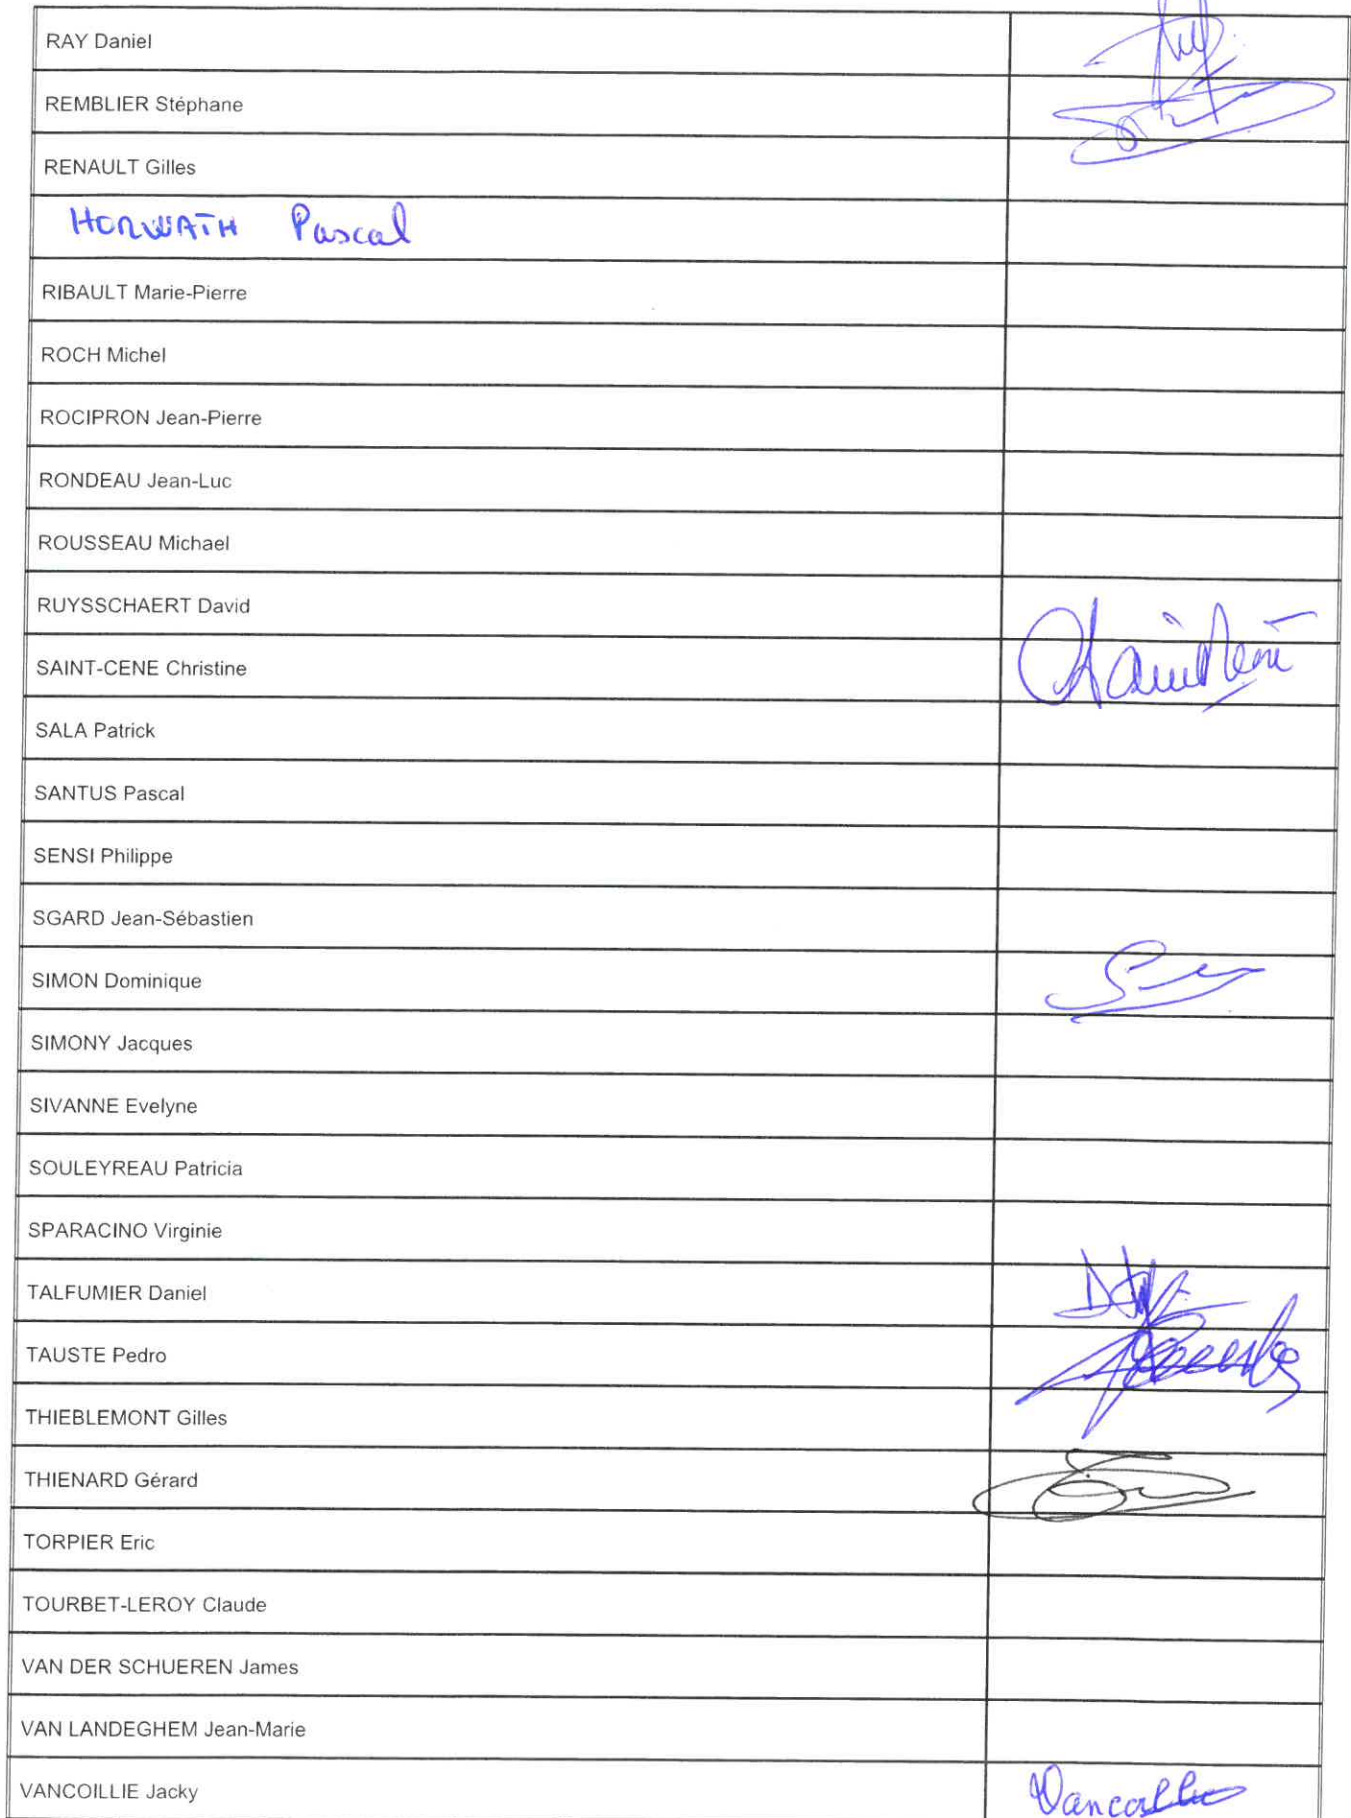 RAY Daniel
REMBLIER Stéphane
RENAULT Gilles
HORWATH Pascal
RIBAULT Marie-Pierre
ROCH Michel
ROCIPRON Jean-Pierre
RONDEAU Jean-Luc
ROUSSEAU Michael
RUYSSCHAERT David
SAINT-CENE Christine
SALA Patrick
SANTUS Pascal
SENSI Philippe
SGARD Jean-Sébastien
SIMON Dominique
SIMONY Jacques
SIVANNE Evelyne
SOULEYREAU Patricia
SPARACINO Virginie
TALFUMIER Daniel
TAUSTE Pedro
THIEBLEMONT Gilles
THIENARD Gérard
TORPIER Eric
TOURBET-LEROY Claude
VAN DER SCHUEREN James
VAN LANDEGHEM Jean-Marie
VANCOILLIE Jacky Vancoillie